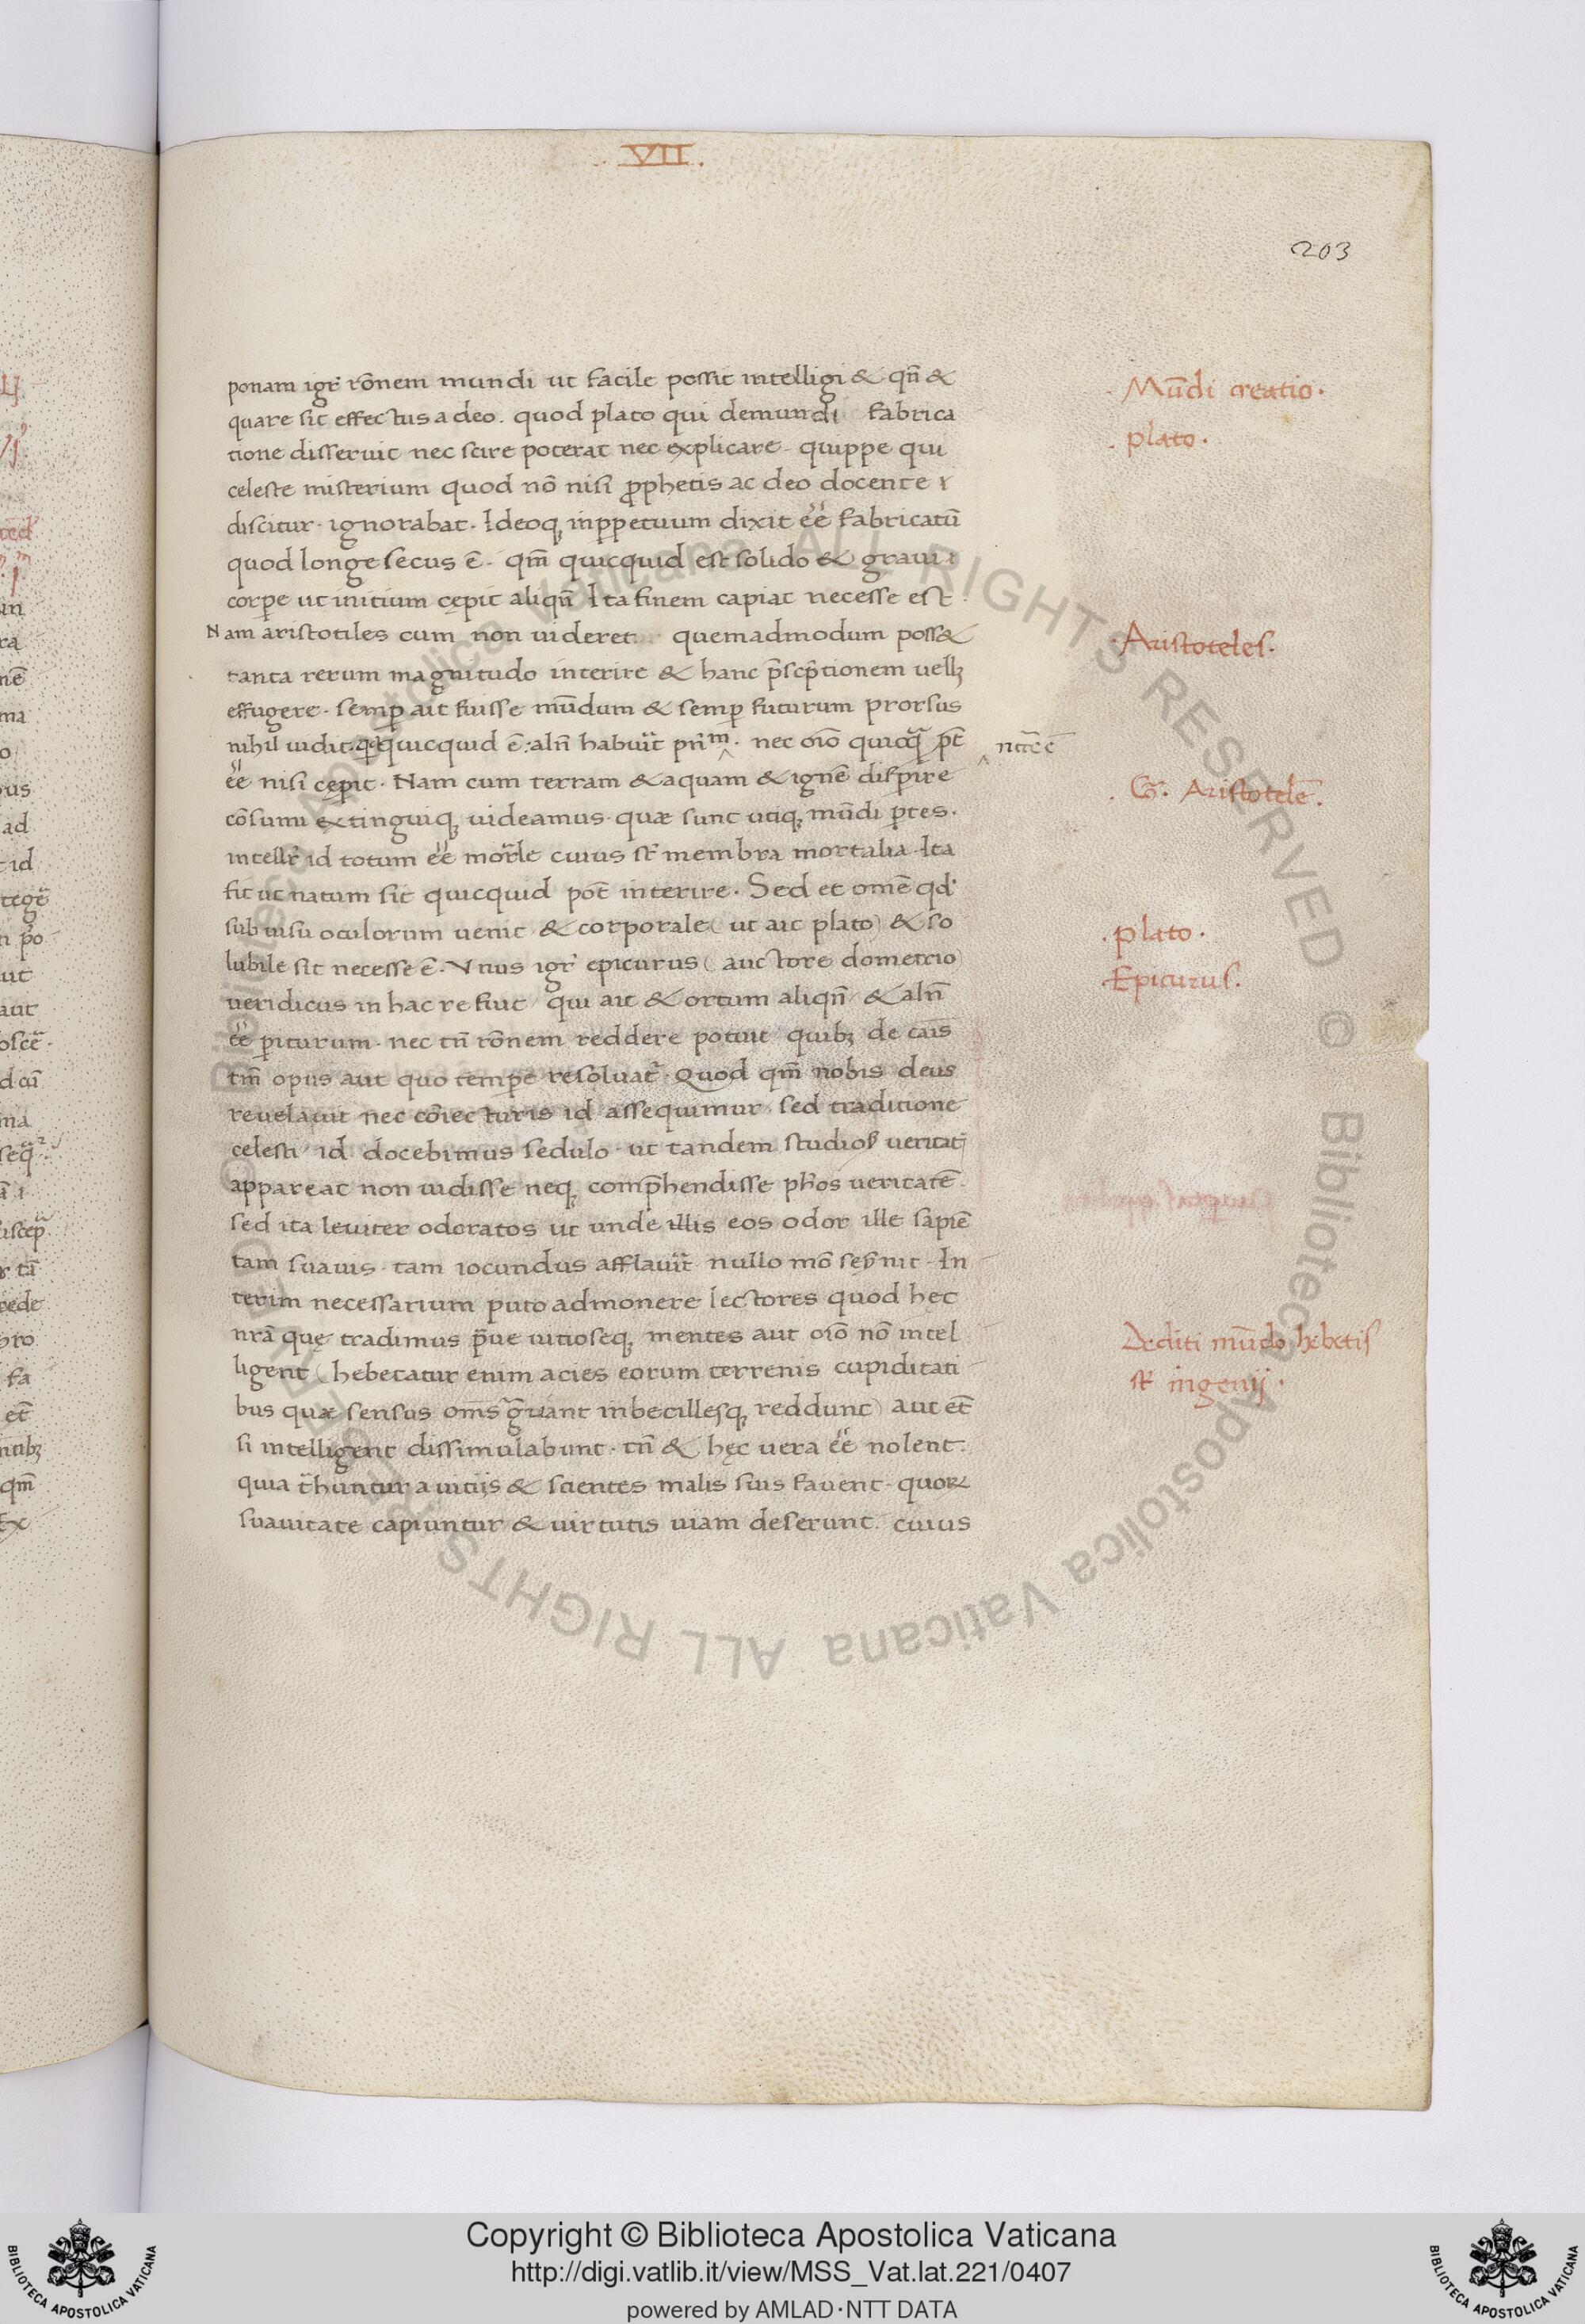 .. VII .
203
ponam igr̃ rõnem mundi ut facile possit intelligi & qñ &
quare sit effectus a deo. quod plato qui demundi fabrica
tione disseruit nec scire poterat nec explicare. quippe qui
celeste misterium quod nõ nisi p̃phetis ac deo docente
discitur. ignorabat. Ideoq; inppetuum dixit eẽ fabricatũ
quod longe secus ẽ. qm̃ quicquid est solido & graui
corpe ut initium cępit aliqñ Ita finem capiat necesse est.
Nam aristotiles cum non uideret quemadmodum poss&
tanta rerum magnitudo interire & hanc p̃scp̃tionem uell;
effugere. semp ait fuisse mũdum & semp futurum prorsus
nihil uidit. qd quicquid ẽ: alñ habuit pñm. nec oĩo quicq̃ pt̃
eẽ nisi cępit. Nam cum terram & aquam & ignẽ disp̃ire
cõsumi extinguiq; uideamus. quæ sunt utiq; mũdi ptes.
intellr̃ id totum eẽ mor̃le cuius st̃ membra mortalia. Ita
fit ut natum sit quicquid pot̃ interire. Sed et omẽ qd'
sub uisu oculorum uenit & corporale (ut ait plato) & so
lubile sit necesse ẽ. Vnus igr̃ epicurus (auctore dometrio)
ueridicus in hac re fiut qui ait & ortum aliqñ & alñ
eẽ piturum. nec tñ rõnem reddere potuit quib; de cãis
tm̃ opus aut quo tempe resoluat̃. Quod qm̃ nobis deus
reuelauit nec cõiecturis id assequimur. sed traditione
celesti id docebimus sedulo. ut tandem studios ueritatj
appareat non uidisse neq; comp̃hendisse ph̃os ueritatẽ.
sed ita leuiter odoratos ut unde illis eos odor ille sapiẽ
tam suauis. tam iocundus afflauit nullo mõ sẽsnit. In
terim necessarium puto admonere lectores quod hęc
nr̃a quę tradimus p̃ue uitioseq; mentes aut oĩo nõ intel
ligent (hebetatur enim acies eorum terrenis cupiditati
bus quæ sensus om̃s g̃uant inbecillesq; reddunt) aut et̃
si intelligent dissimulabunt. tñ & hęc uera eẽ nolent.
quia t̃huntur a uitijs & scientes malis suis fauent. quoꝝ
suauitate capiuntur & uirtutis uiam deserunt. cuius
. Mũdi creatio.
. plato.
. Aristoteles.
. Cõ. Aristotelẽ.
. plato.
. Epicurus.
Dediti mũdo hebetis
st̃ ingenij.
© Biblioteca Apostolica Vaticana ALL RIGHTS RESERVED
Copyright © Biblioteca Apostolica Vaticana
http://digi.vatlib.it/view/MSS_Vat.lat.221/0407
powered by AMLAD·NTT DATA
BIBLIOTECA APOSTOLICA VATICANA
BIBLIOTECA APOSTOLICA VATICANA